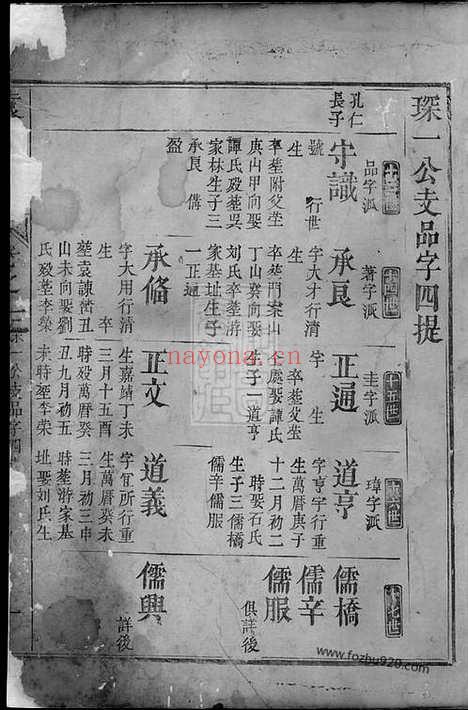 琛一公支品字四提
品字派
孔仁
長子
守識
號 行世
生
卒塟附父塋
庚山甲向娶
譚氏歿塟吳
家林生子三
承良 偹
盈
十四世
著字派
承良
字大才行清
生
丁山癸向娶
刘氏卒塟游
家基址生子
一正通
承脩
字大用行清
生 卒
山未向娶劉
氏歿塟李榮
十五世
圭字派
正通
字 生
卒塟父塋
娶譚氏
生子一道亨
正文
生嘉靖丁未
三月十五酉
時殁萬曆癸
丑九月初五
未時塟李荣
十六世
瑋字派
道亨
字亨宇行重
生萬曆庚子
十二月初二
時娶石氏
生子三儒橋
儒辛儒服
道義
字宜所行重
生萬曆癸未
三月初三申
時塟游家基
址娶刘氏生
十七世
儒橋
儒辛
儒服
俱詳後
儒興
詳後
nayona.cn
www.fozhu920.com